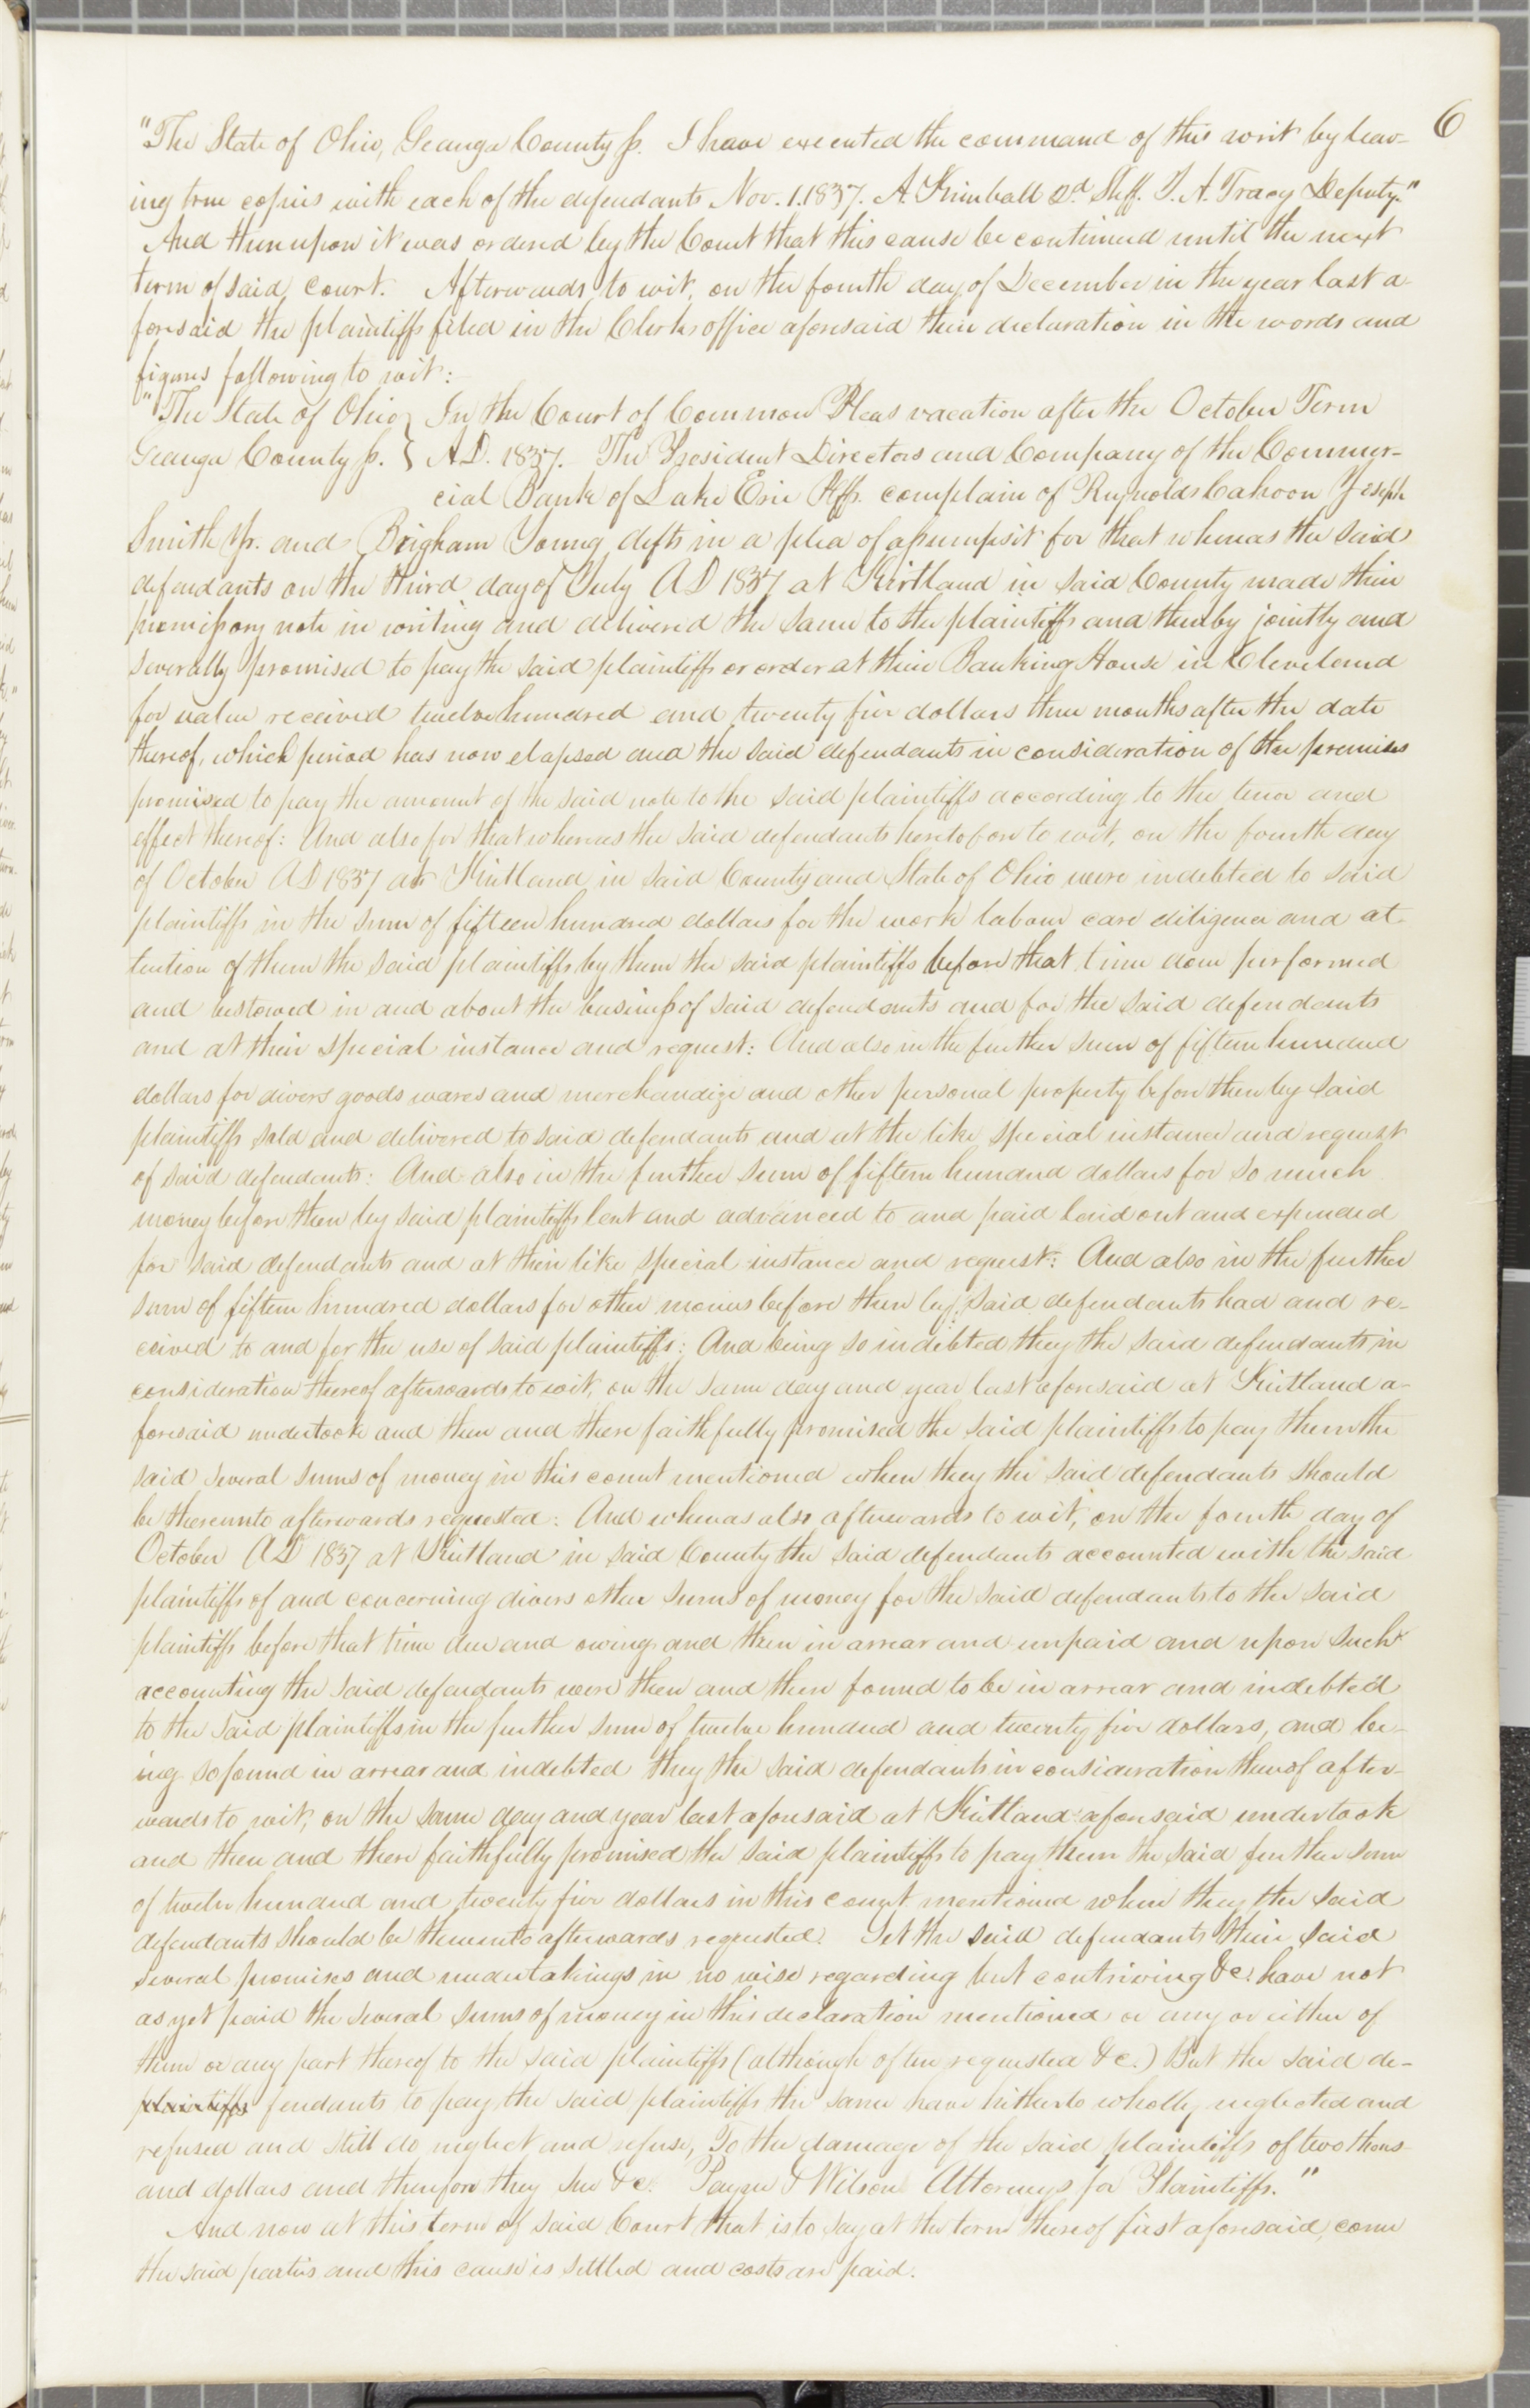 6
"The State of Ohio, Geauga County ss. I have executed the command of this writ by leav-
ing true copies with each of the defendants Nov. 1. 1837. A. Kimball 2d. Shff. J. A. Tracy Deputy."
And thereupon it was ordered by the Court that this cause be continued until the next
term of said court. Afterwards, to wit, on the fourth day of December in the year last a-
foresaid the plaintiffs filed in the Clerks office aforesaid their declaration in the words and
figures following to wit:
"The State of Ohio } In the Court of Common Pleas vacation after the October Term
Geauga County ss. } A.D. 1837. The President Directors and Company of the Commer-
cial Bank of Lake Erie Plffs. complain of Reynolds Cahoon Joseph
Smith Jr. and Brigham Young defts in a plea of assumpsit for that whereas the said
defendants on the third day of July AD 1837 at Kirtland in said County made their
promissory note in writing and delivered the same to the plaintiffs and thereby jointly and
severally promised to pay the said plaintiffs or order at their Banking House in Cleveland
for value received twelve hundred and twenty five dollars three months after the date
thereof, which period has now elapsed and the said defendants in consideration of the premises
promised to pay the amount of the said note to the said plaintiffs according to the tenor and
effect thereof: And also for that whereas the said defendants heretofore to wit, on the fourth day
of October AD 1837 at Kirtland in said County and State of Ohio were indebted to said
plaintiffs in the sum of fifteen hundred dollars for the work labour care diligence and at-
tention of them the said plaintiffs by them the said plaintiffs before that time done performed
and bestowed in and about the business of said defendants and for the said defendants
and at their special instance and request: And also in the further sum of fifteen hundred
dollars for divers goods wares and merchandize and other personal property before then by said
plaintiffs sold and delivered to said defendants and at the like special instance and request
of said defendants: And also in the further sum of fifteen hundred dollars for so much
money before then by said plaintiffs lent and advanced to and paid laid out and expended
for said defendants and at their like special instance and request: And also in the further
sum of fifteen hundred dollars for other monies before then by said defendants had and re-
ceived to and for the use of said plaintiffs: And being so indebted they the said defendants in
consideration thereof afterwards to wit, on the same day and year last aforesaid at Kirtland a-
foresaid undertook and then and there faithfully promised the said plaintiffs to pay them the
said several sums of money in this count mentioned when they the said defendants should
be thereunto afterwards requested: And whereas also afterwards to wit, on the fourth day of
October AD 1837 at Kirtland in said County the said defendants accounted with the said
plaintiffs of and concerning divers other sums of money for the said defendants to the said
plaintiffs before that time due and owing and then in arrear and unpaid and upon such
accounting the said defendants were then and there found to be in arrear and indebted
to the said plaintiffs in the further sum of twelve hundred and twenty five dollars, and be-
ing so found in arrear and indebted they the said defendants in consideration thereof after-
wards to wit, on the same day and year last aforesaid at Kirtland aforesaid undertook
and then and there faithfully promised the said plaintiffs to pay them the said further sum
of twelve hundred and twenty five dollars in this count mentioned when they the said
defendants should be thereunto afterwards requested. Yet the said defendants their said
several promises and undertakings in no wise regarding but contriving &c. have not
as yet paid the several sums of money in this declaration mentioned or any or either of
them or any part thereof to the said plaintiffs (although often requested &c.) But the said de-
plaintiffs fendants to pay the said plaintiffs the same have hitherto wholly neglected and
refused and still do neglect and refuse, To the damage of the said plaintiffs of two thous-
and dollars and therefore they sue &c. Payne & Wilson Attorneys for Plaintiffs."
And now at this term of said Court that is to say at the term thereof first aforesaid, come
the said parties and this cause is settled and costs are paid.